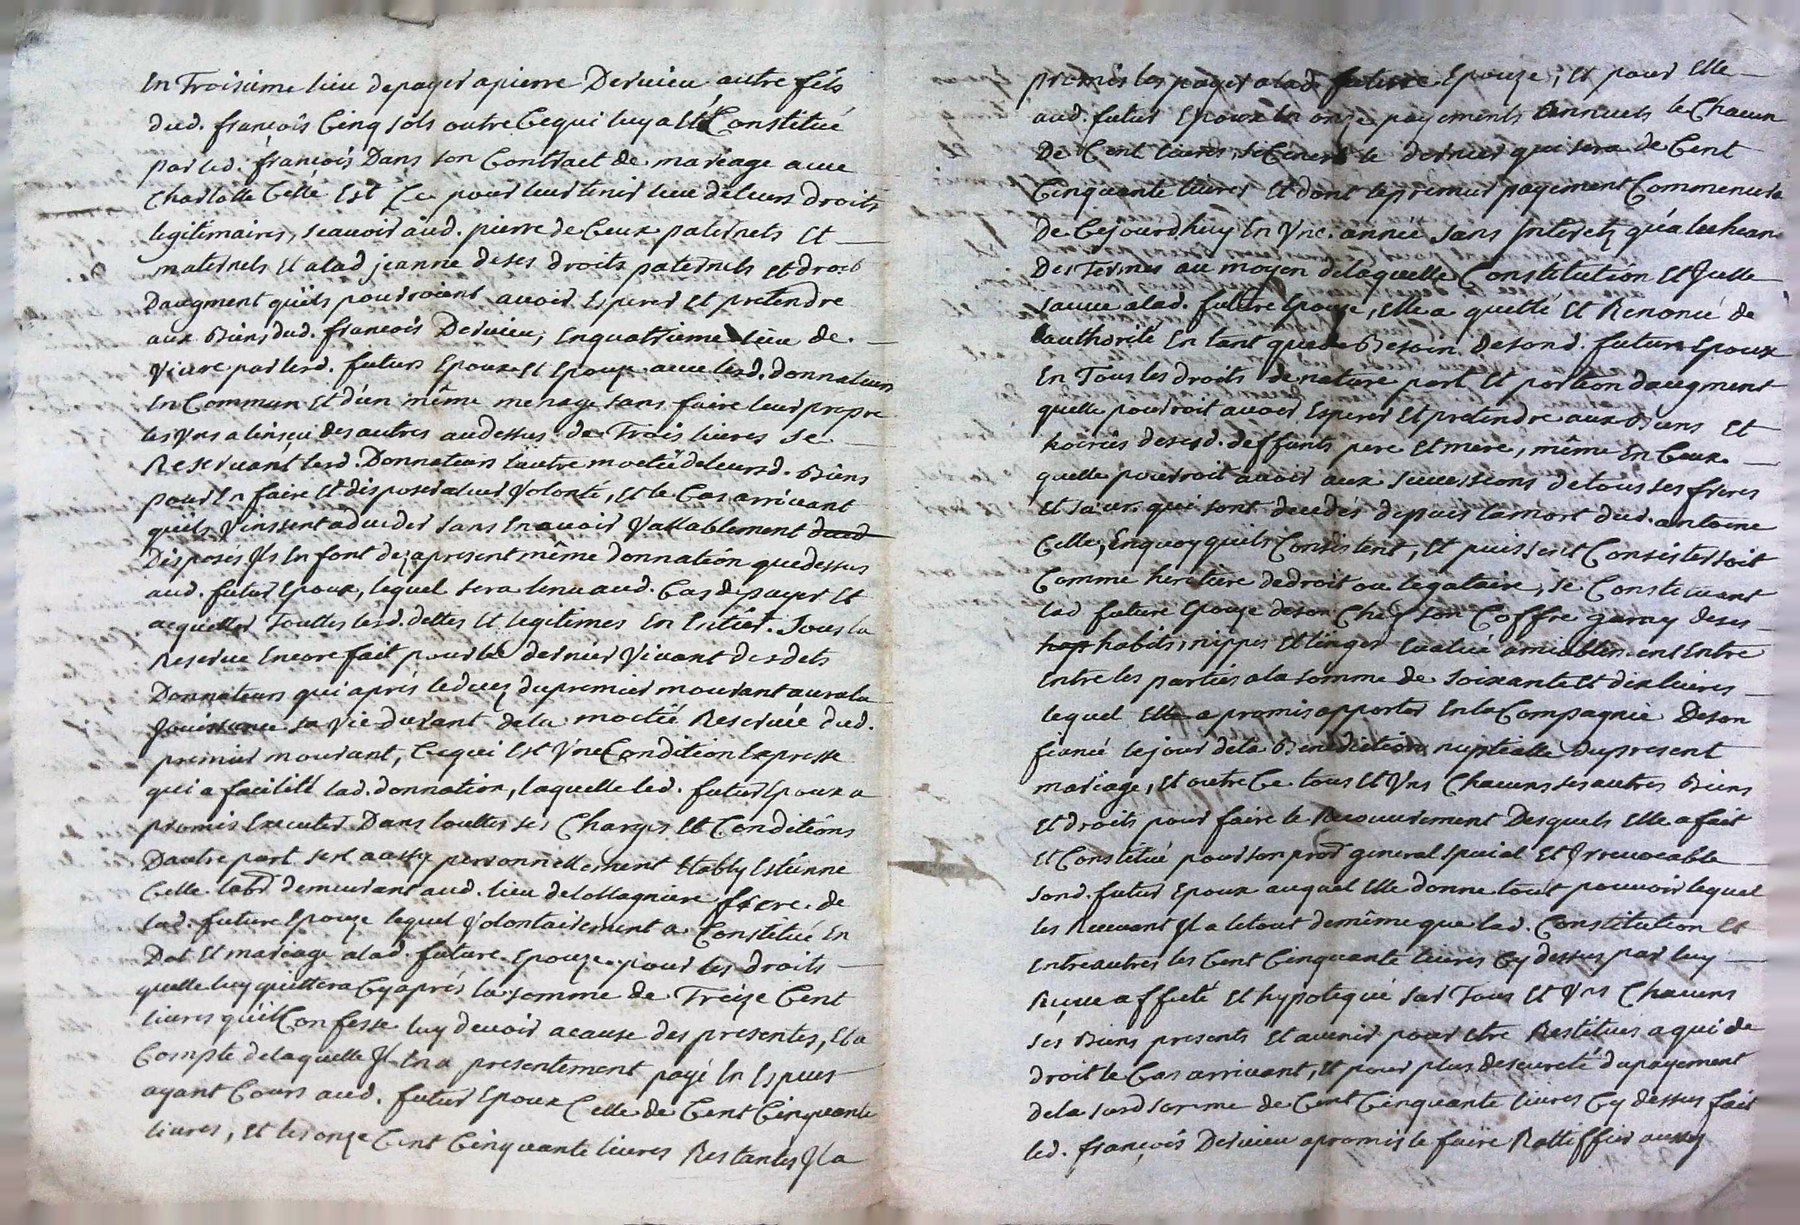 En Troisieme lieu de payer a pierre Dervieu autre fils
dud. françois Cinq sols outre Ce qui luy a Eté Constitué
par led. françois Dans son Contract de mariage avec
Charlotte Celle Est Ce pour leur tenir lieu de leurs droits
legitimaires, scavoir aud. pierre de Ceux paternels Et
maternels Et a lad jeanne de ses droits paternels Et droit
Daugment quils pourroient avoir Esperer Et pretendre
aux Biens dud. françois Dervieu, En quatrieme lieu de
Vivre par lesd. futurs Epoux Et Epouze avec lesd. donnateurs
En Commun Et d'un même menage sans faire leur propre
les Uns a linsçu des autres au dessus de Trois livres se
Reservant lesd. Donnateurs lautre moetié de leursd. Biens
pour En faire Et disposer a leur Volonté, Et le Cas arrivant
quils Vinssent a deceder sans En avoir Vallablement
Disposés Ils En font dez a present même donnation que dessus
aud. futur Epoux, lequel sera tenu aud. Cas de payer Et
acquitter Touttes lesd. dettes Et legitimes En Entier. Sous la
Reserve Encore fait pour le dernier Vivant desdits
Donnateurs qui aprés le deces du premier mourant aura la
Jouissance sa Vie durant de la moetié Reservée dud.
premier mourant, Ce qui Est Une Condition Expresse
qui a facilité lad. donnation, laquelle led. futur Epoux a
promis Executer Dans touttes ses Charges Et Conditions
Dautre part sest aussy personnellement Etably Estienne
Celle labr demeurant aud. lieu de lollagniere frere de
lad. future Epouze lequel Volontairement a Constitué En
Dot Et mariage a lad. future Epouze pour les droits
quelle luy quittera Cy aprés la somme de Treize Cent
livres quil Confesse luy devoir a cause des presentes, Et a
Compte de laquelle Il En a presentement payé En Especes
ayant Cours aud. futur Epoux Celle de Cent Cinquante
livres, Et les onze Cent Cinquante livres Restantes Il a
promis les payer a lad future Epouze, Et pour Elle
aud. futur Epoux En onze payements Annuels le Chacun
De Cent livres, le dernier qui sera de Cent
Cinquante livres Et dont le premier payement Commencera
De Cejourdhuy En Une année sans Interetz qu'a lecheance
Des Termes au moyen de laquelle Constitution Et Icelle
sauve a lad. future Epouze, Elle a quitté Et Renoncé de
lauthorité En tant que de Besoin de sond. futur Epoux
En Tous les droits de nature part Et portion daugment
quelle pourroit avoir Esperer Et pretendre aux Biens Et
hoiries de sesd. deffunts pere Et mere, même En Ceux
quelle pourroit avoir aux successions de tous ses freres
Et sœurs qui sont decedés depuis la mort dud. antoine
Celle, En quoy quils Consistent, Et puissent Consister soit
Comme heritiere de droit ou legataire, se Constituant
lad future Epouze de son Chef son Coffre garny de ses
hap habits, nippes Et linges Evalué amiablement Entre
Entre les parties a la somme de soixante Et dix livres
lequel Elle a promis apporter En la Compagnie De son
fiancé le jour de la Benediction nuptialle du present
mariage, Et outre Ce tous Et Uns Chacuns ses autres Biens
Et droits pour faire le Recouvrement Desquels Elle a fait
Et Constitué pour son procr general special Et Irrevocable
sond. futur Epoux auquel Elle donne tout pouvoir lequel
les Recevant Il a le tout de même que lad. Constitution Et
Entre autres les Cent Cinquante livres Cy dessus par luy
Reçue affecté Et hypotequé sur Tous Et Uns Chacuns
ses Biens presents Et avenir pour Etre Restitués a qui de
droit le Cas arrivant, Et pour plus de seureté du payement
de la susd somme de Cent Cinquante livres Cy dessus fait
led. françois Dervieu a promis le faire Rattiffier aussy